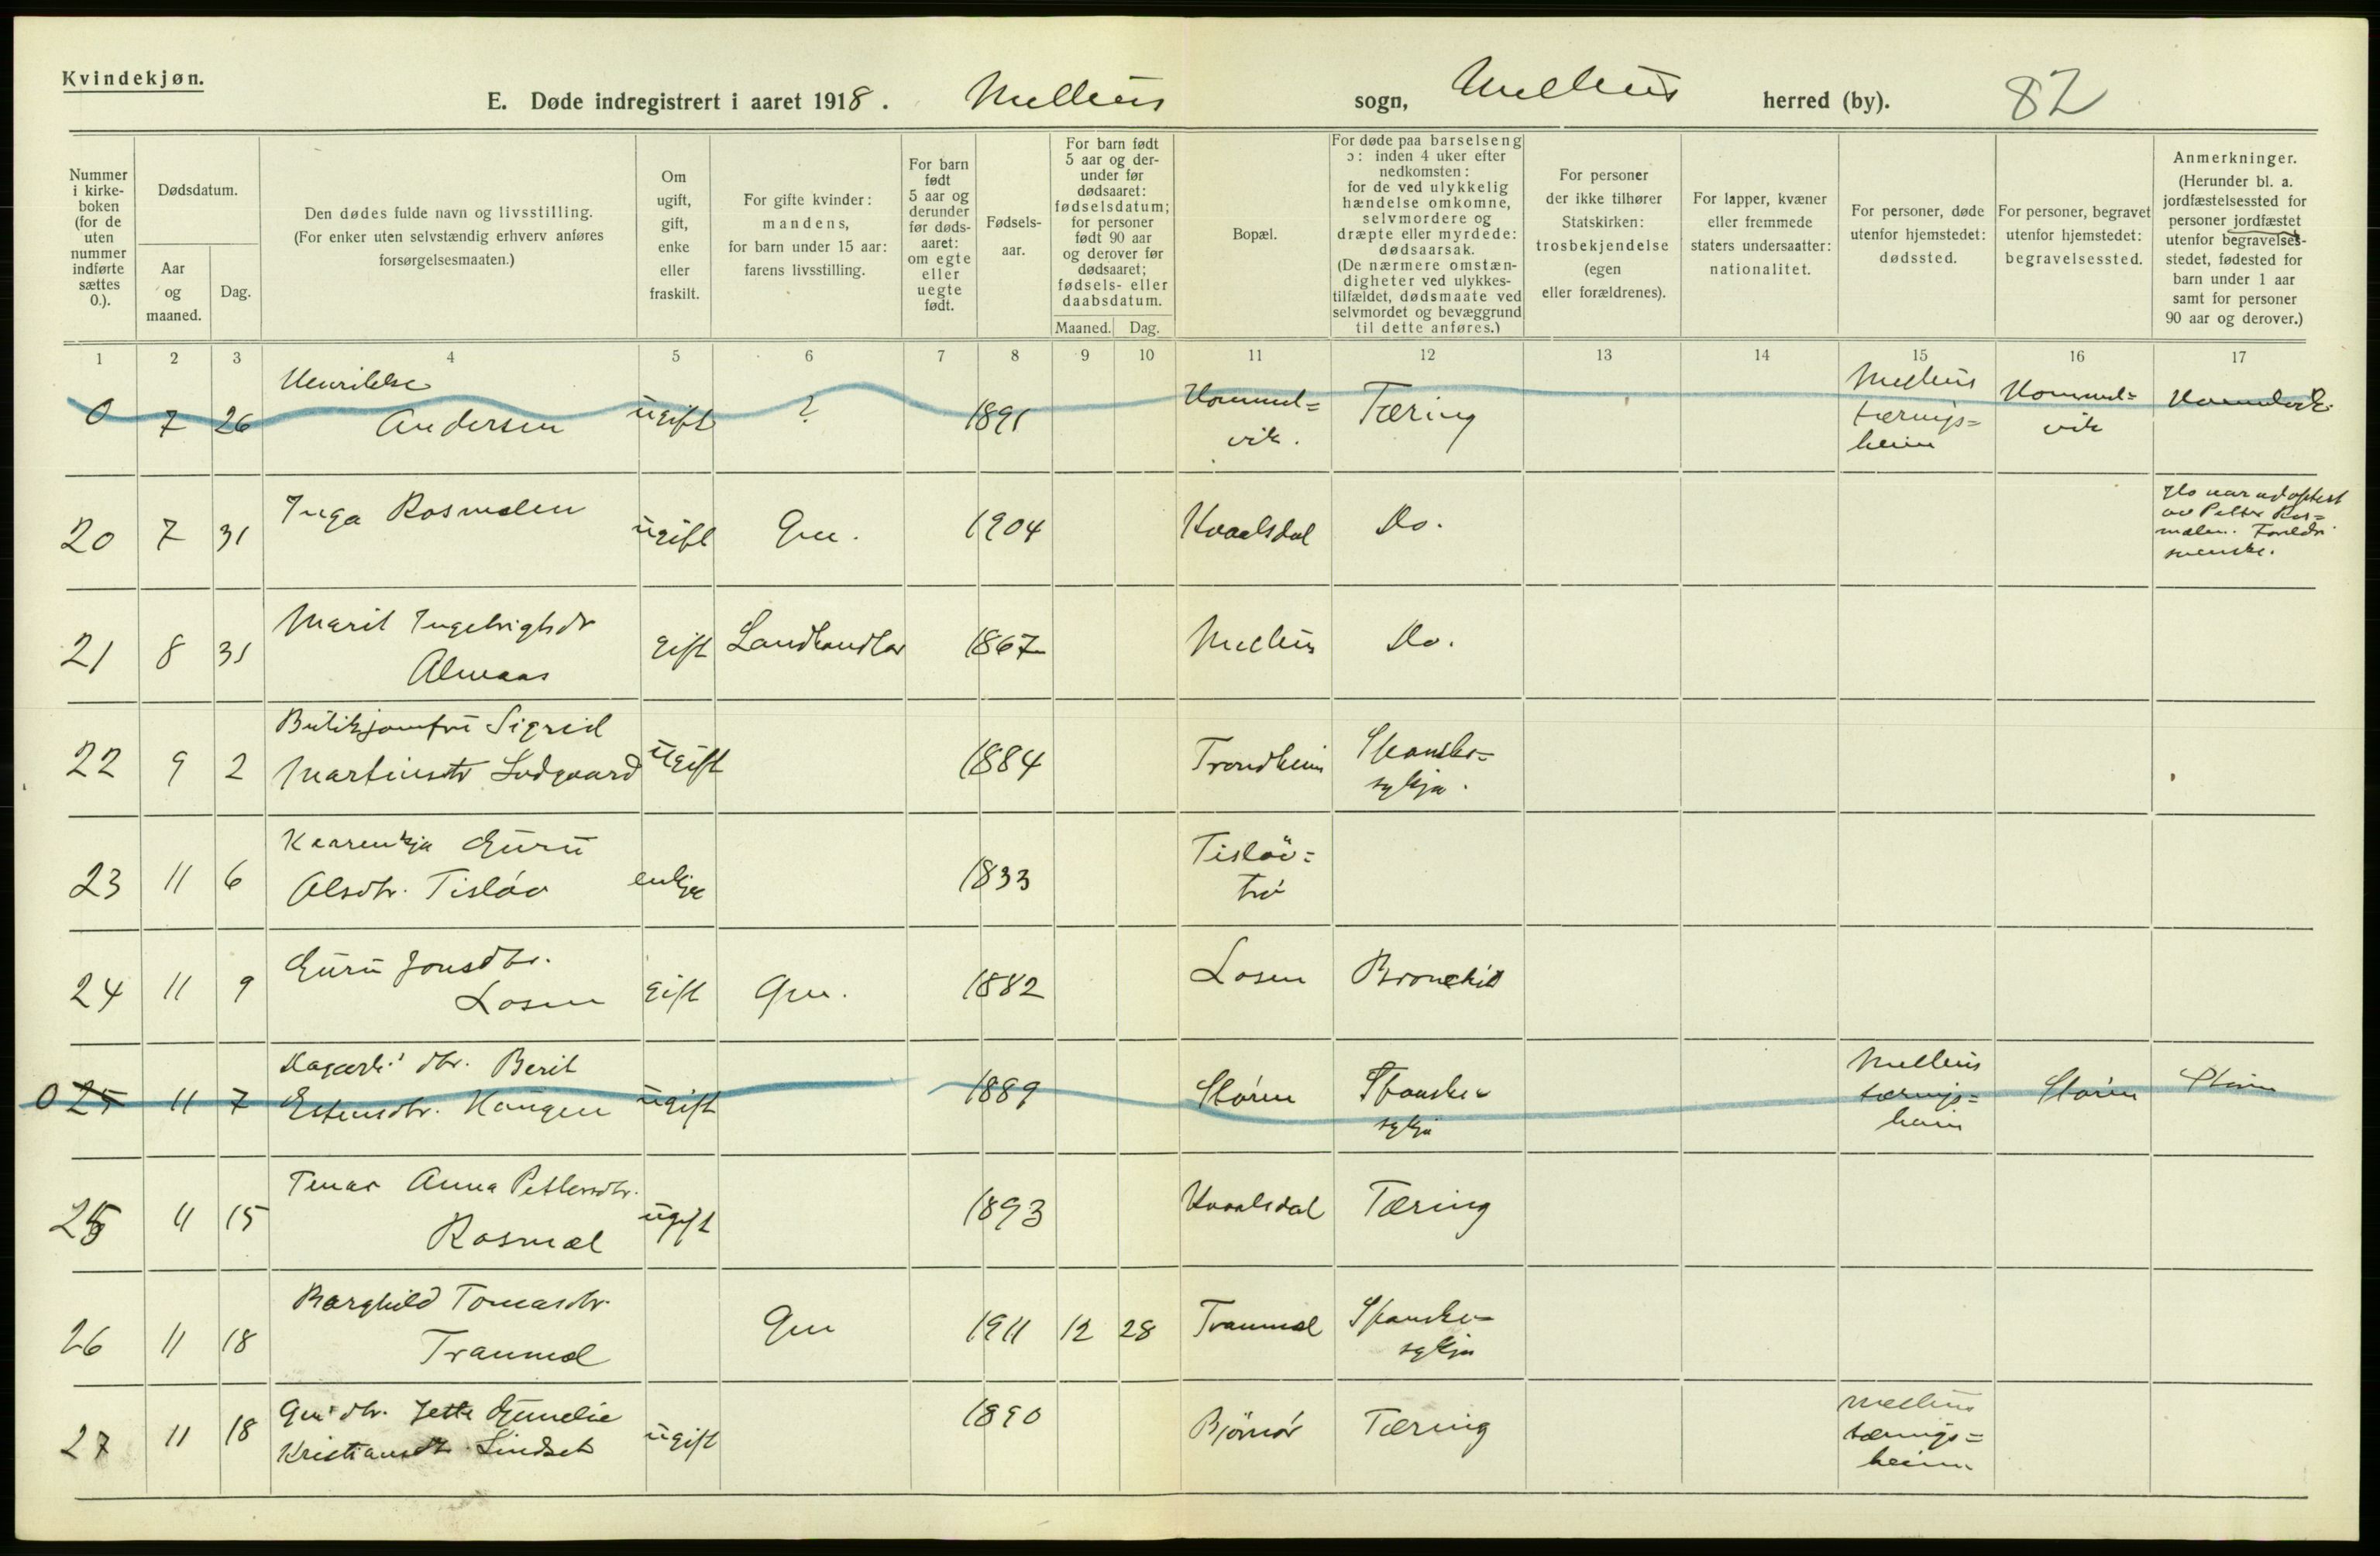 Kvindekjøn.
E. Døde indregistrert i aaret 1918. Melhus sogn, Melhus herred (by). 82
Nummer i kirke-boken (for de uten nummer indførte sættes 0.).
Dødsdatum.
Aar og maaned.
Dag.
Den dødes fulde navn og livsstilling.
(For enker uten selvstændig erhverv anføres forsørgelsesmaaten.)
Om ugift, gift, enke eller fraskilt.
For gifte kvinder: mandens, for barn under 15 aar: farens livsstilling.
For barn født 5 aar og derunder før døds-aaret: om egte eller uegte født.
Fødsels-aar.
For barn født 5 aar og der-under før dødsaaret: fødselsdatum; for personer født 90 aar og derover før dødsaaret; fødsels- eller daabsdatum.
Maaned. Dag.
Bopæl.
For døde paa barselseng ɔ: inden 4 uker efter nedkomsten: for de ved ulykkelig hændelse omkomne, selvmordere og dræpte eller myrdede: dødsaarsak.
(De nærmere omstæn-digheter ved ulykkes-tilfældet, dødsmaate ved selvmordet og bevæggrund til dette anføres.)
For personer der ikke tilhører Statskirken: trosbekjendelse (egen eller forældrenes).
For lapper, kvæner eller fremmede staters undersaatter: nationalitet.
For personer, døde utenfor hjemstedet: dødssted.
For personer, begravet utenfor hjemstedet: begravelsessted.
Anmerkninger.
(Herunder bl. a. jordfæstelsessted for personer jordfæstet utenfor begravelses-stedet, fødested for barn under 1 aar samt for personer 90 aar og derover.)
1 2 3 4 5 6 7 8 9 10 11 12 13 14 15 16 17
0 7 26 Andersen ugift ? 1891 Hommel=vik. Tæring Melhus tærings=heim Hommel=vik
20 7 31 Inga Rosmælen ugift Gm. 1904 Kvaalsdal Do. Ho var adoptert av Petter Ros=mælen. svenske.
21 8 31 Marit Ingebrigtsdr Almaas gift Landhandlar 1867 Melhus Do.
22 9 2 Butikjomfru Sigrid Martinsdtr Lodgaard ugift 1884 Trondheim Spanske=sykja.
23 11 6 Guru Olsdtr. Tisløv enkje 1833 Tisløv=trø
24 11 9 Guru Jonsdtr. Losen gift Gm. 1882 Losen Bronchit
0 25 11 7 dtr. Berit Estensdtr. Haugen ugift 1889 Støren Spanske=sykja Melhus tærings=heim Støren Støren
25 11 15 Tenar Anna Pettersdtr. Rosmæl ugift 1893 Kvaalsdal Tæring
26 11 18 Borghild Tomasdtr. Tranmæl Gm 1911 12 28 Tranmæl Spanske=sykja
27 11 18 Gm dtr. Jette Kristiansdtr. Lindset ugift 1890 Bjørnør Tæring Melhus tærings=heim